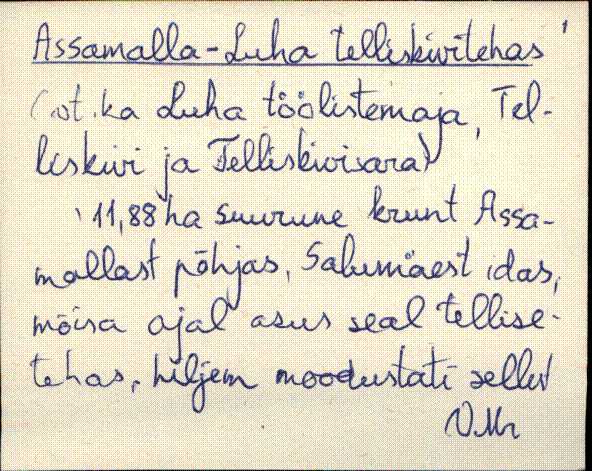 Assamalla-Luha telliskivitehas
(vt. ka Luha töölistemaja, Tel-
liskivi ja Telliskivisara)
11,88 ha suurune krunt Assa-
mallast põhjas, Salumäest idas,
mõisa ajal asus seal tellise-
tehas, hiljem moodustati sellest